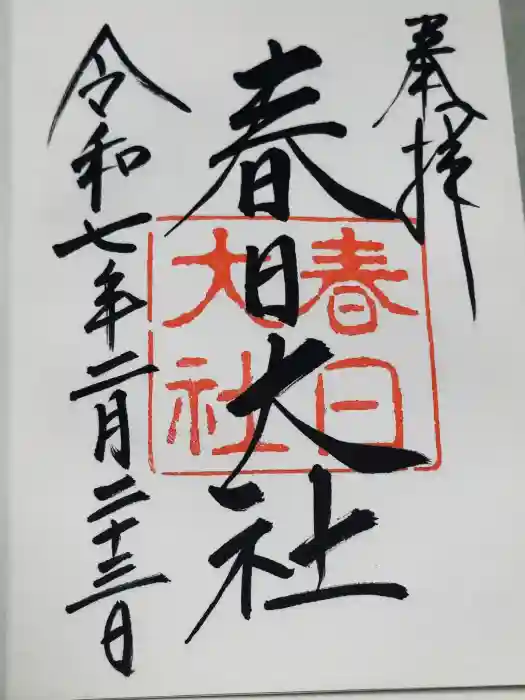 奉拝
春日大社
春日
大社
令和七年二月二十三日